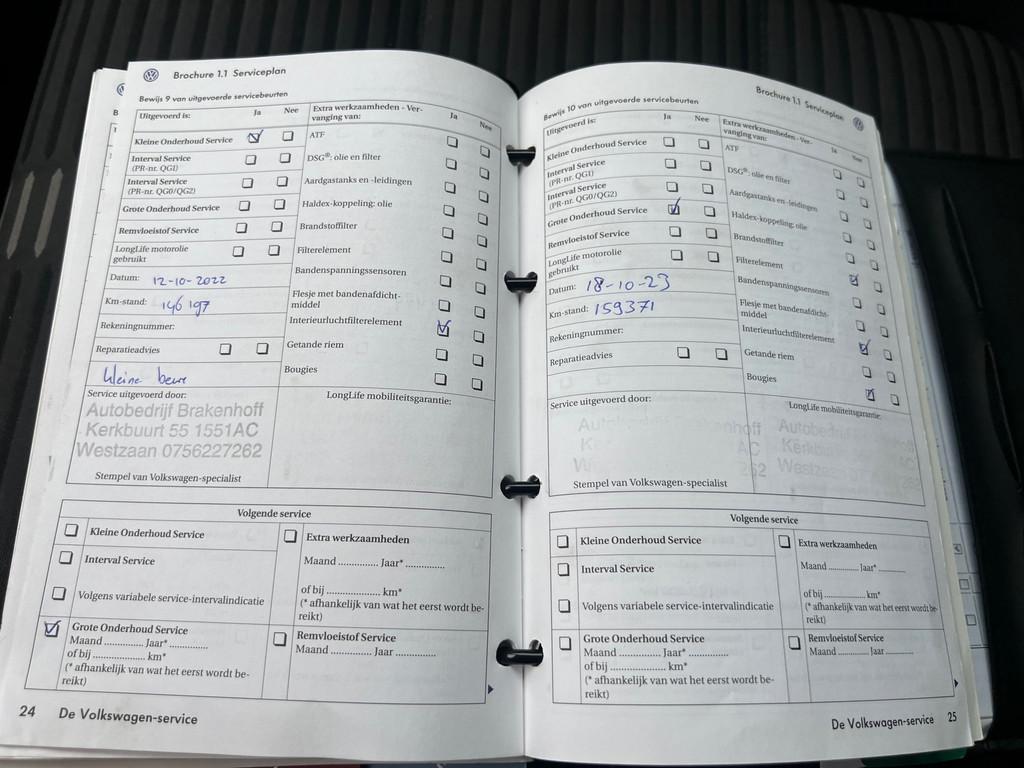 Brochure 1.1 Serviceplan
Bewijs 9 van uitgevoerde servicebeurten
Uitgevoerd is:
Ja
Nee
Extra werkzaamheden - Ver-
vanging van:
Ja
Nee
Kleine Onderhoud Service
ATF
Interval Service
(PR-nr. QG1)
DSG®: olie en filter
Interval Service
(PR-nr. QG0/QG2)
Aardgastanks en -leidingen
Grote Onderhoud Service
Haldex-koppeling: olie
Remvloeistof Service
Brandstoffilter
LongLife motorolie
gebruikt
Filterelement
Datum: 12-10-2022
Bandenspanningssensoren
Km-stand: 146197
Flesje met bandenafdicht-
middel
Rekeningnummer:
Interieurluchtfilterelement
Reparatieadvies
Getande riem
kleine beurt
Bougies
Service uitgevoerd door:
LongLife mobiliteitsgarantie:
Autobedrijf Brakenhoff
Kerkbuurt 55 1551AC
Westzaan 0756227262
Stempel van Volkswagen-specialist
Volgende service
Kleine Onderhoud Service
Extra werkzaamheden
Interval Service
Maand .............. Jaar* ..............
Volgens variabele service-intervalindicatie
of bij ................... km*
(* afhankelijk van wat het eerst wordt be-
reikt)
Grote Onderhoud Service
Maand .............. Jaar* ..............
of bij ................... km*
(* afhankelijk van wat het eerst wordt be-
reikt)
Remvloeistof Service
Maand .............. Jaar ..............
24 De Volkswagen-service
Brochure 1.1 Serviceplan
Bewijs 10 van uitgevoerde servicebeurten
Uitgevoerd is:
Ja
Nee
Extra werkzaamheden - Ver-
vanging van:
Ja
Nee
Kleine Onderhoud Service
ATF
Interval Service
(PR-nr. QG1)
DSG®: olie en filter
Interval Service
(PR-nr. QG0/QG2)
Aardgastanks en -leidingen
Grote Onderhoud Service
Haldex-koppeling: olie
Remvloeistof Service
Brandstoffilter
LongLife motorolie
gebruikt
Filterelement
Datum: 18-10-23
Bandenspanningssensoren
Km-stand: 159371
Flesje met bandenafdicht-
middel
Rekeningnummer:
Interieurluchtfilterelement
Reparatieadvies
Getande riem
Bougies
Service uitgevoerd door:
LongLife mobiliteitsgarantie:
Stempel van Volkswagen-specialist
Volgende service
Kleine Onderhoud Service
Extra werkzaamheden
Interval Service
Maand .............. Jaar* ..............
Volgens variabele service-intervalindicatie
of bij ................... km*
(* afhankelijk van wat het eerst wordt be-
reikt)
Grote Onderhoud Service
Maand .............. Jaar* ..............
of bij ................... km*
(* afhankelijk van wat het eerst wordt be-
reikt)
Remvloeistof Service
Maand .............. Jaar ..............
De Volkswagen-service 25